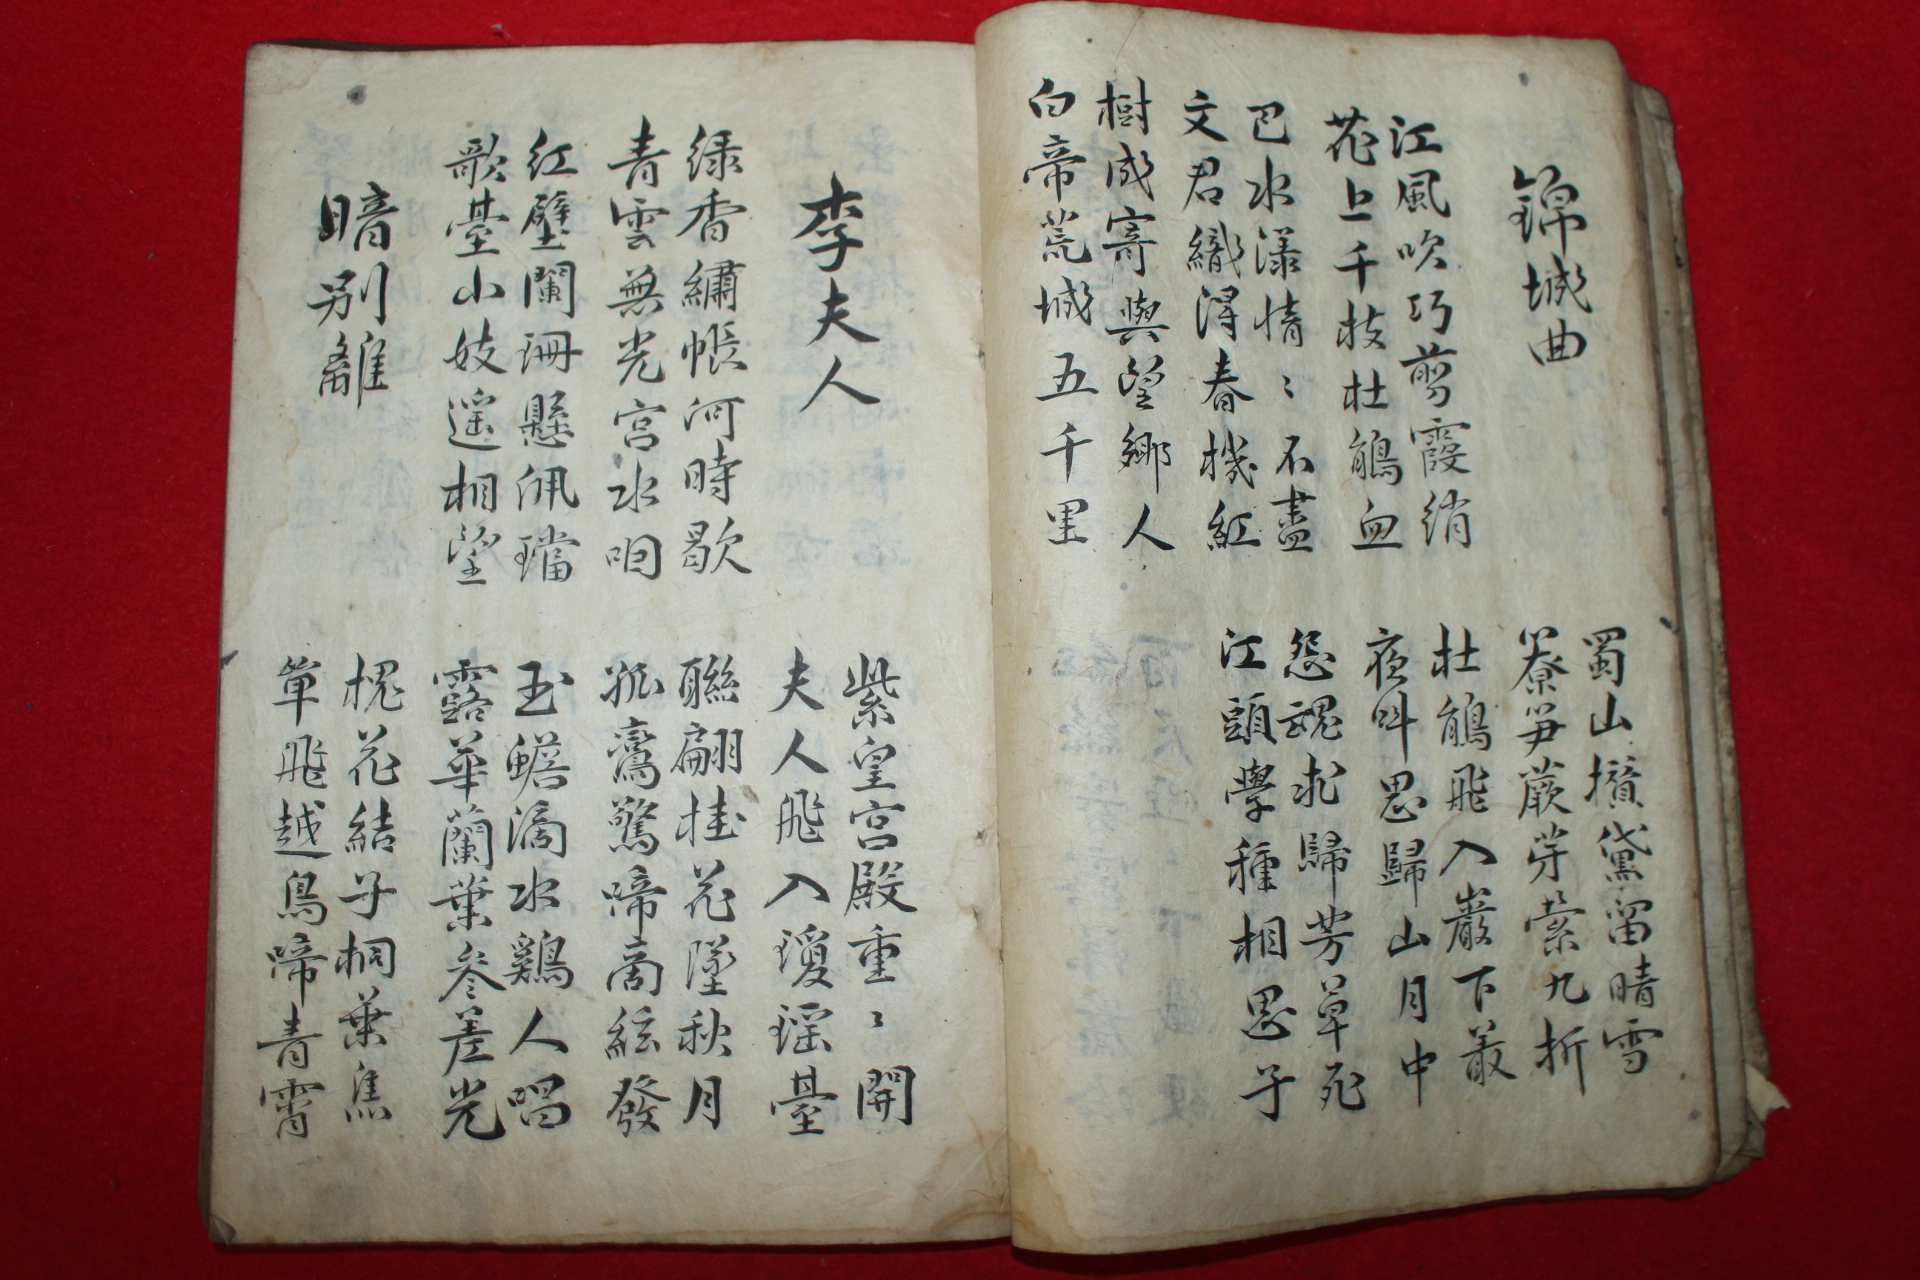 錦城曲
蜀山攢黛留晴雪
簝笋蕨芽縈九折
江風吹巧剪霞綃
花上千枝杜鵑血
杜鵑飛入巖下叢
夜叫思歸山月中
巴水漾情〻不盡
文君織得春機紅
怨魂未歸芳草死
江頭學種相思子
樹成寄與望鄉人
白帝荒城五千里
李夫人
紫皇宮殿重〻開
夫人飛入瓊瑤臺
綠香繡帳河時歇
青雲無光宮水咽
聯翩桂花墜秋月
孤鸞驚啼商絃發
紅壁闌珊懸佩璫
歌臺小妓遙相望
玉蟾滴水鷄人唱
露華蘭葉參差光
暗別離
槐花結子桐葉焦
單飛越鳥啼青霄